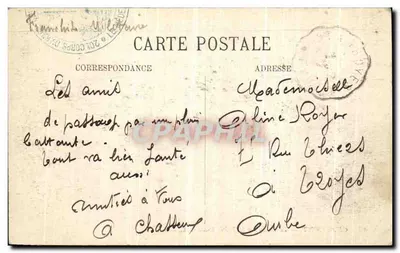 Franchise Militaire
CARTE POSTALE
CORRESPONDANCE
ADRESSE
Les amis
de passage par un plui
battante.
tout va bien Santé
aussi
Amitiés à Vous
Mademoiselle
Aline Royer
7 Rue Thiers
à
Troyes
Aube